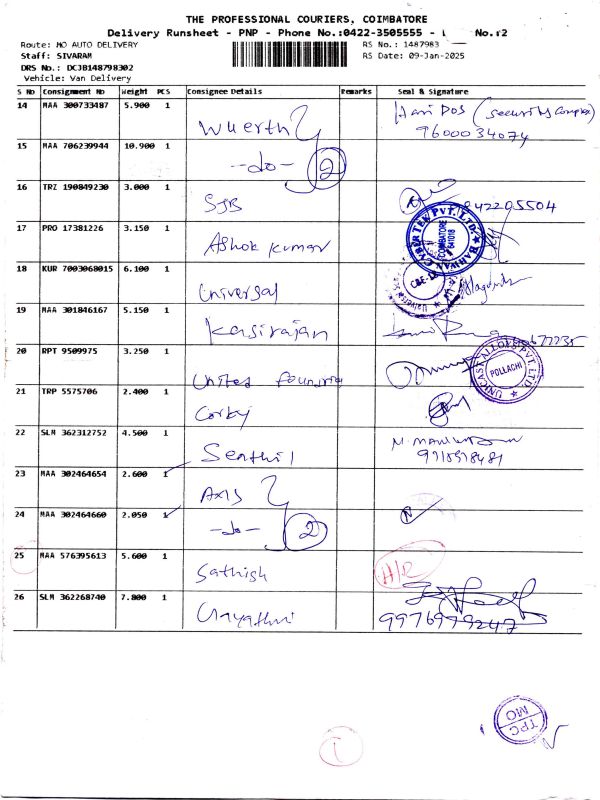 THE PROFESSIONAL COURIERS, COIMBATORE
Delivery Runsheet - PNP - Phone No.:0422-3505555 - No.:2
Route: MO AUTO DELIVERY RS No.: 1487983
Staff: SIVARAM RS Date: 09-Jan-2025
DRS No.: DCJB148798302
Vehicle: Van Delivery
S No Consignment No Weight PCS Consignee Details Remarks Seal & Signature
14 MAA 300733487 5.900 1 Wuerth Hari DOS (Security Complex)
9600034074
15 MAA 706239944 10.900 1 -do- 2
16 TRZ 190849230 3.000 1 SJB 942205504
17 PRO 17381226 3.150 1 Ashok kumar
18 KUR 7003068015 6.100 1 Universal
19 MAA 301846167 5.150 1 Kasirajan
20 RPT 9509975 3.250 1 United foundria
UNICAST ALLOYS PVT. LTD. POLLACHI
21 TRP 5575706 2.400 1 Corby
22 SLM 362312752 4.500 1 Senthil
23 MAA 302464654 2.600 1 Axis
24 MAA 302464660 2.050 1 -do- 2
25 MAA 576395613 5.600 1 Sathish H/R
26 SLM 362268740 7.800 1 Gayathri
9976979247
TPC
MO